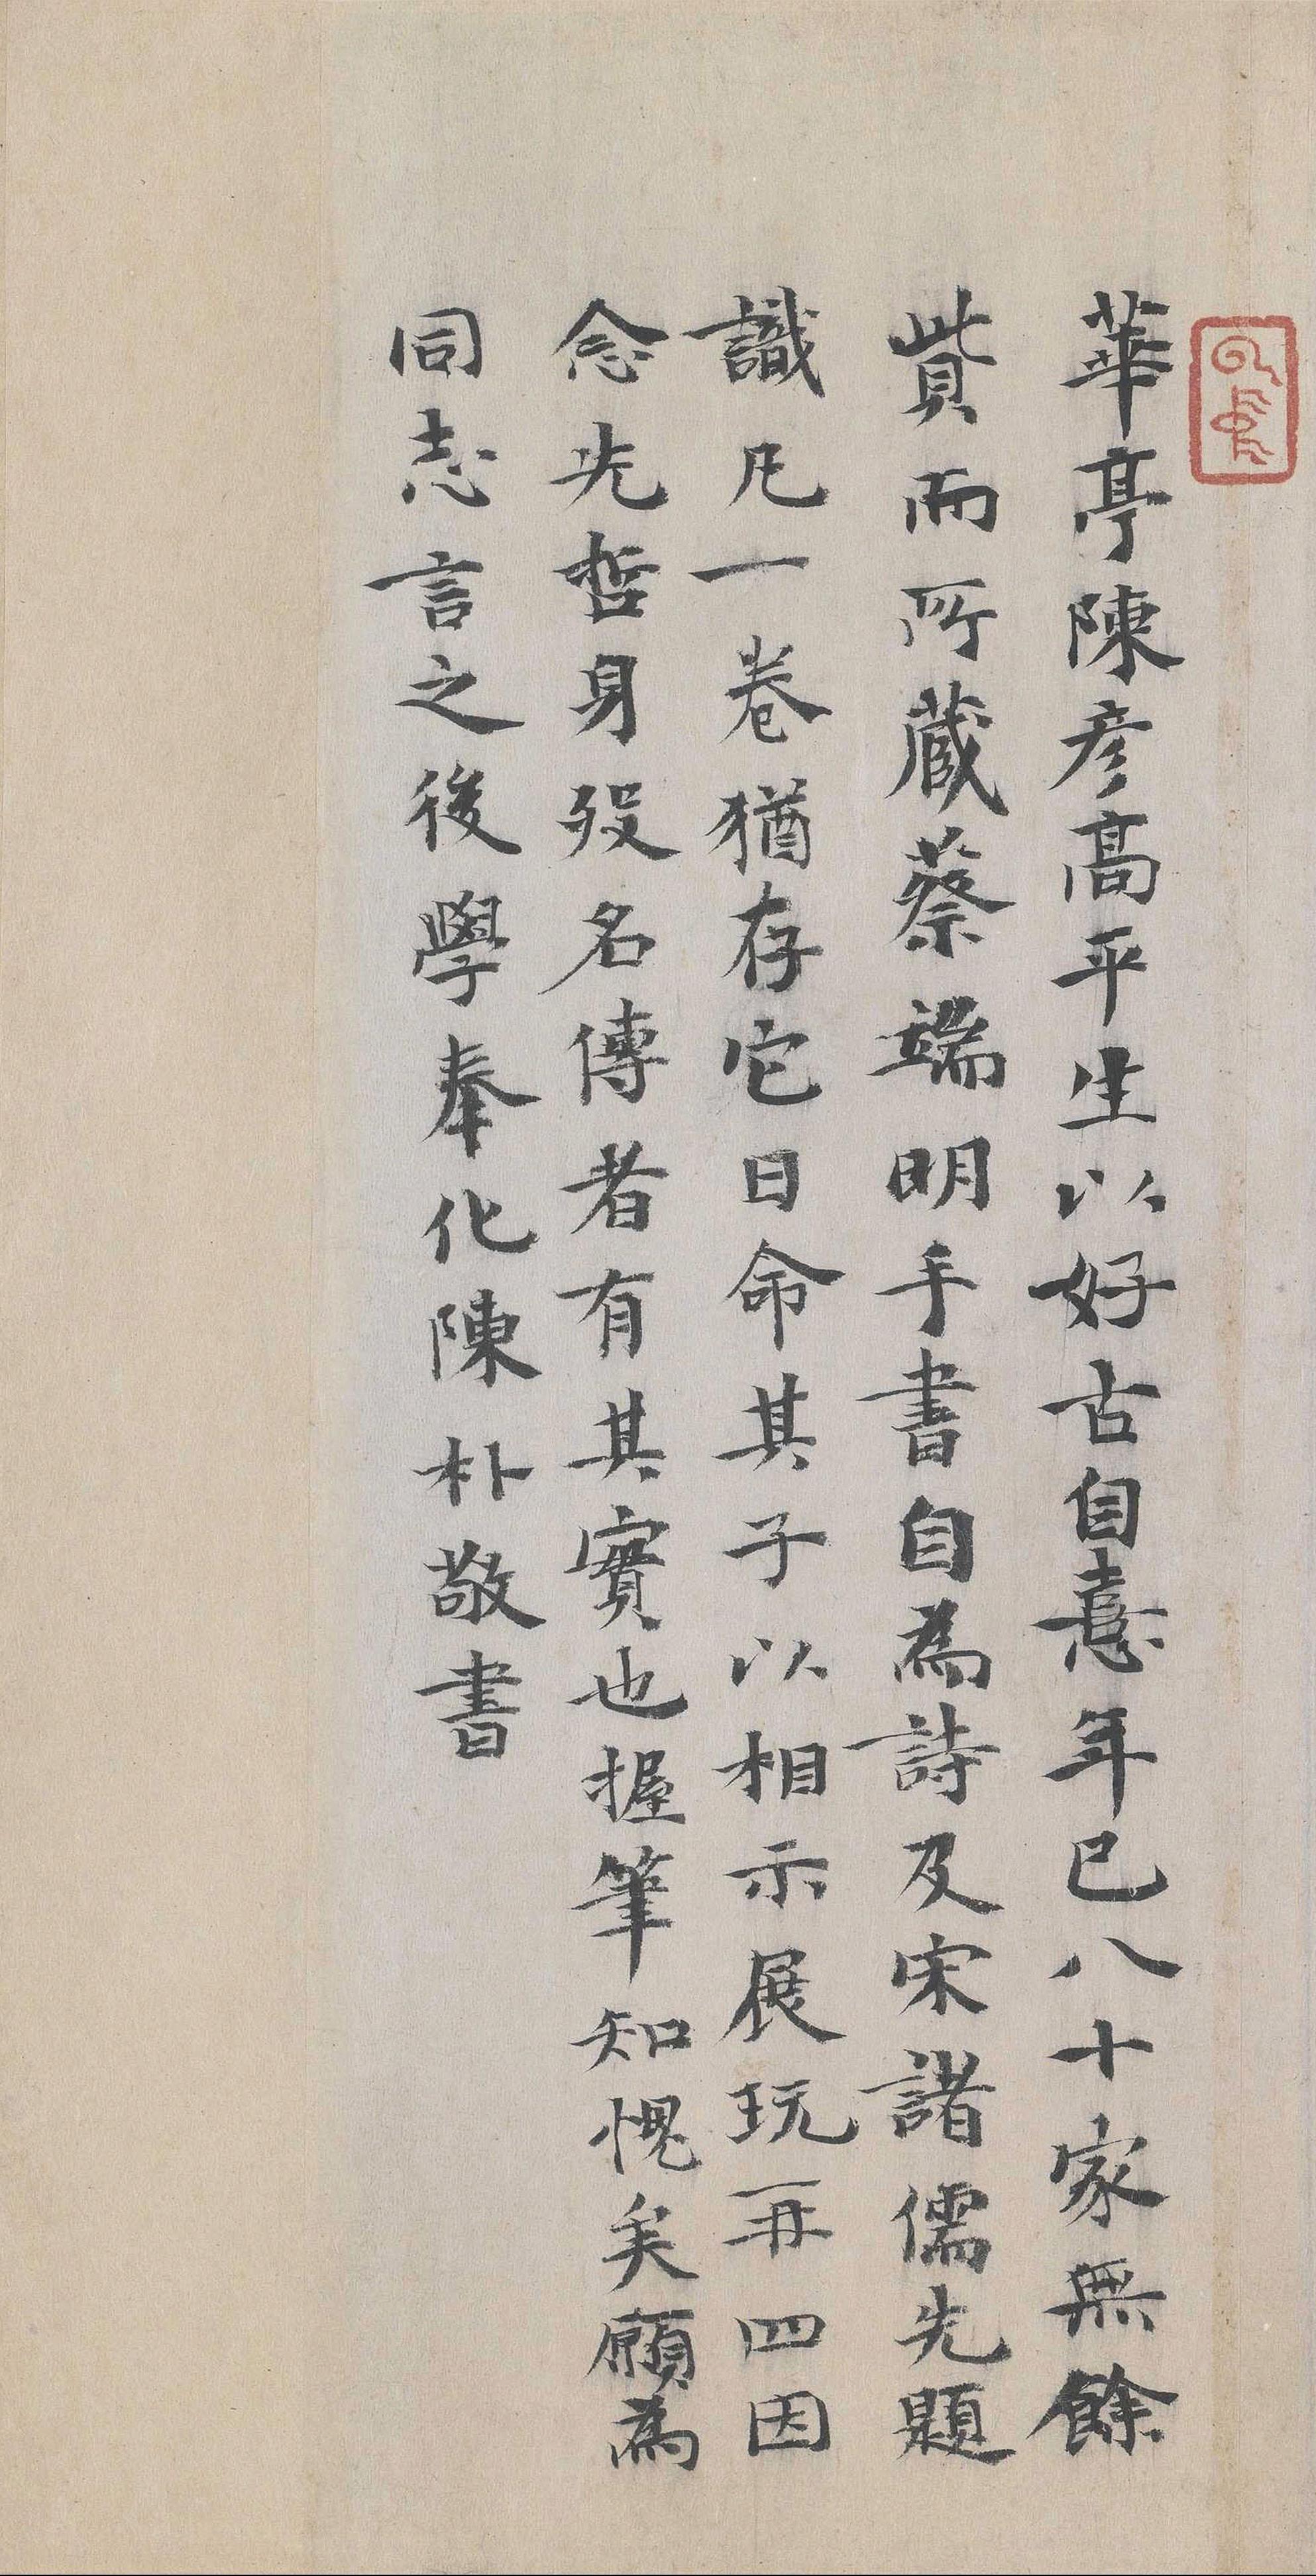 華亭陳彥髙平生以好古自憙年已八十家無餘
貲而所蔵蔡端明手書自為詩及宋諸儒先題
識凡一卷猶存它日命其子以相示展玩再四因
念先哲身歿名傳者有其實也握筆知愧矣願為
同志言之後學奉化陳朴敬書